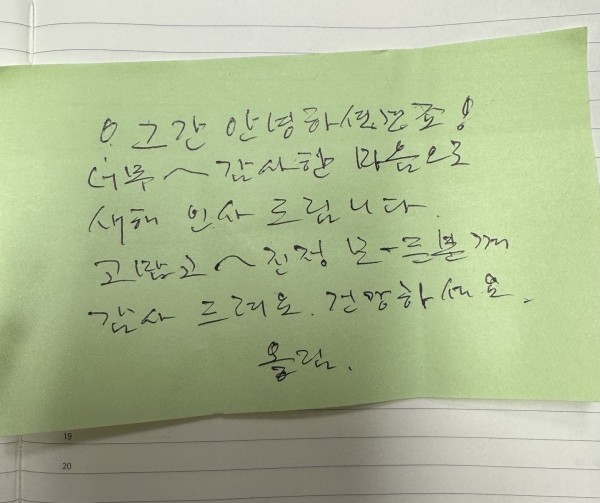 그간 안녕하셔건죠!
너무~ 감사한 마음으로
새해 인사 드립니다.
고맙고~ 진정 모-든분께
감사 드려요. 건강하세요.
올림.
19
20